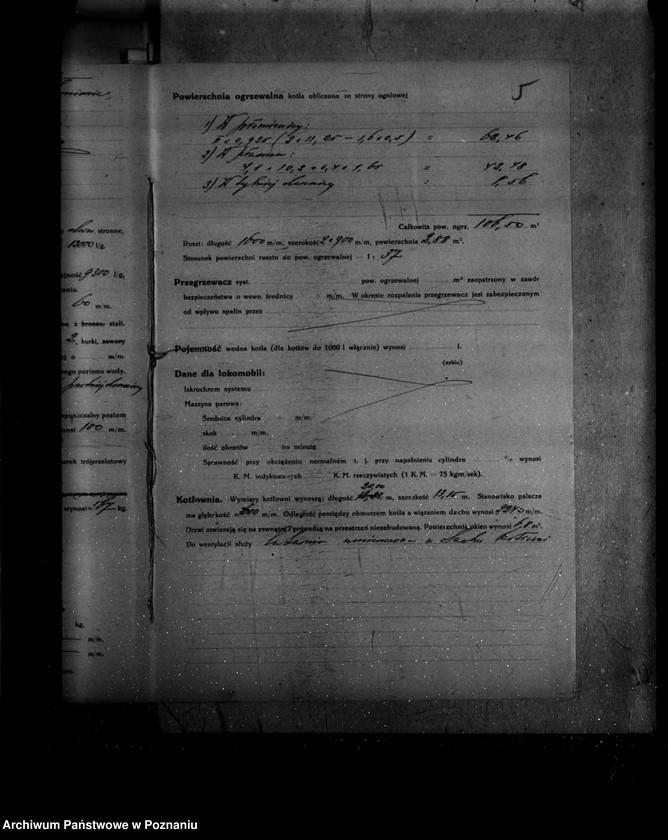 5
Powierzchnia ogrzewalna kotła obliczona ze strony ogniowej
1) W płomienicy:
π · 0,925 (2 · 11,25 — 1,6 · 0,5) =
2) W
4,1 + 10,2 + 0,4 + 1,60 = 42,48
3) W tylnej : 1,56
Całkowita pow. ogrz. 106,50 m²
Ruszt: długość 1600 m/m, szerokość 2 × 900 m/m, powierzchnia 2,88 m².
Stosunek powierzchni rusztu do pow. ogrzewalnej — 1 : 37
Przegrzewacz syst. pow. ogrzewalnej m² zaopatrzony w zawór
bezpieczeństwa o wewn. średnicy m/m. W okresie rozpalania przegrzewacz jest zabezpieczonym
od wpływu spalin przez
Pojemność wodna kotła (dla kotłów do 1000 l włącznie) wynosi l.
Dane dla lokomobil:
Iskrochron systemu
Maszyna parowa:
Średnica cylindra m/m.
skok m/m,
ilość obrotów na minutę.
Sprawność przy obciążeniu normalnem t. j. przy napełnieniu cylindra % wynosi
K. M. indykowanych K. M. rzeczywistych (1 K. M. — 75 kgm/sek).
20,00
Kotłownia. Wymiary kotłowni wynoszą: długość m, szerokość 12,15 m. Stanowisko palacza
ma głębokość m/m. Odległość pomiędzy obmurzem kotła a wiązaniem dachu wynosi 2240 m/m.
Drzwi otwierają się na zewnątrz i prowadzą na przestrzeń niezabudowaną. Powierzchnia okien wynosi m².
Do wentylacji służy latarnia umieszczona w dachu kotłowni
stronne,
12000 l/g.
9300 l/g,
60 m/m.
z bronzu, stali.
2, kurki, zawory
m/m.
poziomu wody.
poziom
100 m/m.
trójprzelotowy
wynosi kg.
kg.
m/m,
m/m.
Archiwum Państwowe w Poznaniu